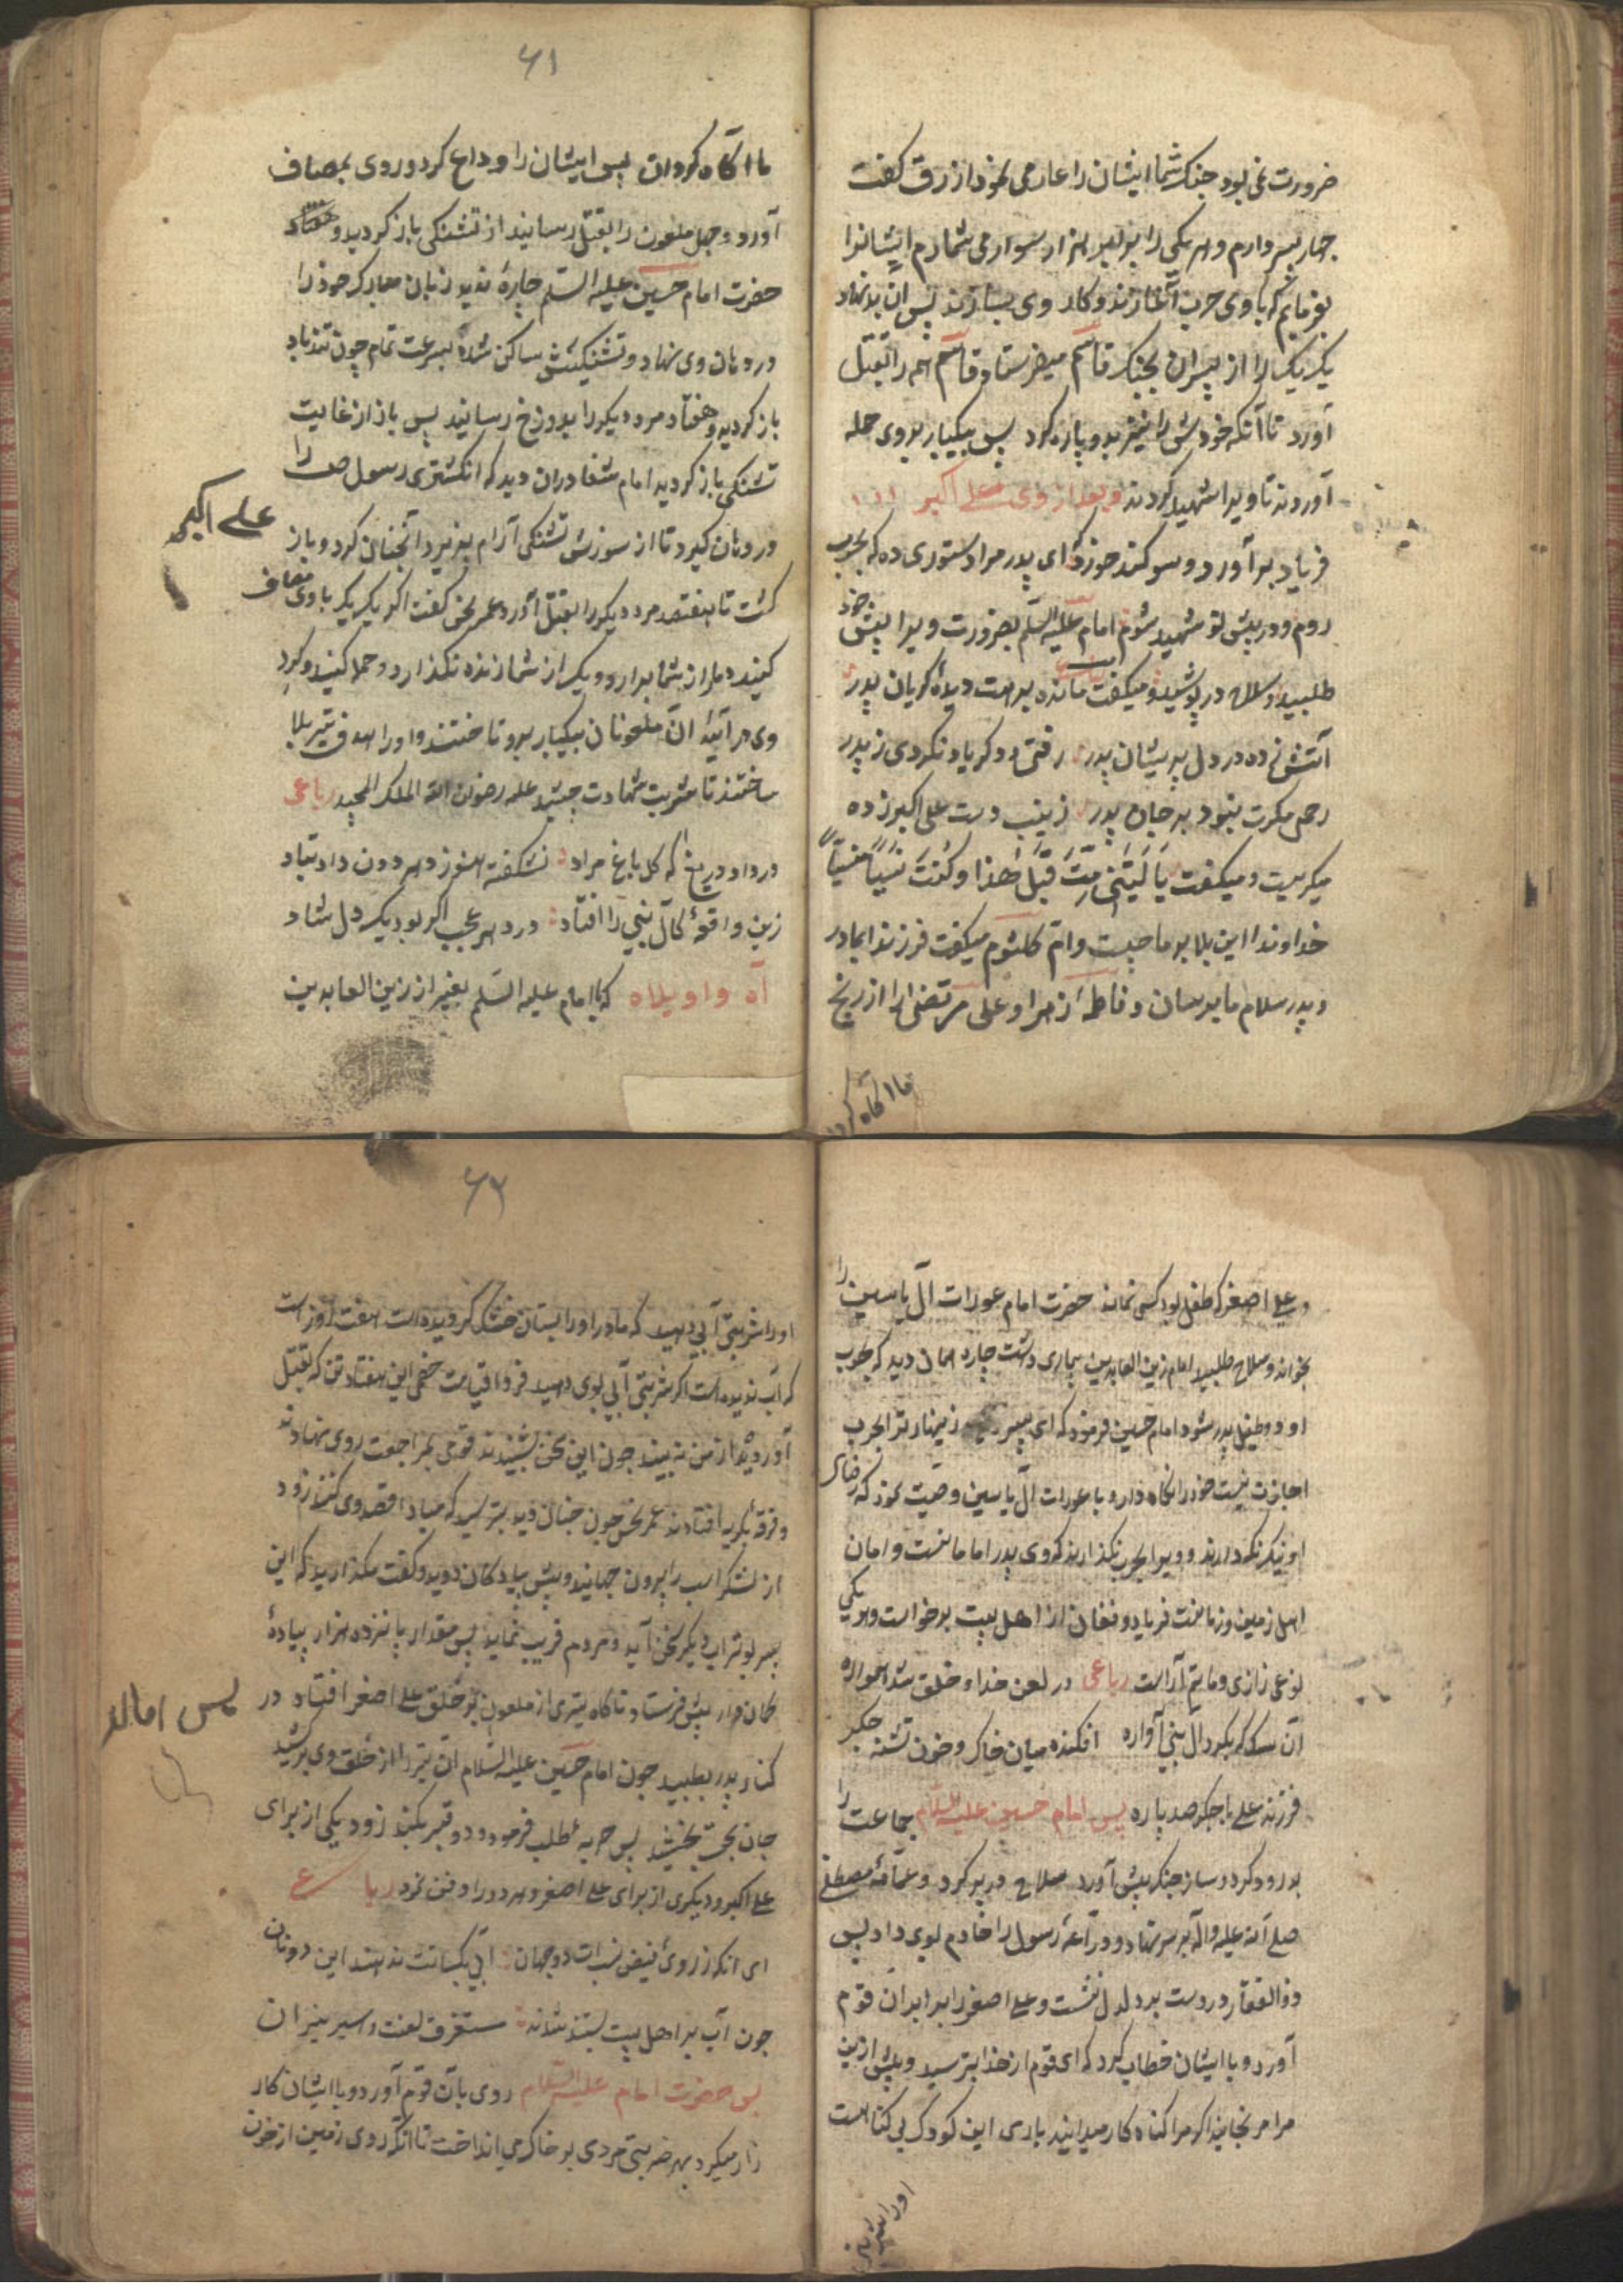 ضرورت نمی بود جنک شما ایشان را عار می نمود ازرق کفت
چهار پسر دارم و هر یکی را برابر هزار سوار می شمارم ایشانرا
بفرمایم که با وی حرب آغاز ند و کار وی بسازند پس ان بدنهاد
یک یک را از پسران بجنک قاسم میفرستاد و قاسم هم را بقتل
آورد تا آنکه خودش را نیز بدو پاره کرد پس بیکبار بروی حمله
آوردند تا ویرا شهید کردند و بعد از وی علی اکبر
فریاد برآورد و سوکند خورد ای پدر مرا دستوری ده که بحرب
روم و در پیش تو شهید شوم امام علیه السلم بضرورت ویرا پیش خود
طلبید و سلاح در پوشید و میکفت مانده براهت دیدهٔ کریان پدر
آتش زده در دل پریشان پدر رفتی و دکر یاد نکردی ز پدر
رحمی مکرت نبود بر جان پدر زینب دست علی اکبر زده
میکریست و میکفت یَا لَیتَنی مِتُّ قَبلَ هٰذا وکُنتُ نَسیاً مَنسیاً
خداوندا این بلا بر ما چیست و ام کلثوم میکفت فرزند ابمادر
و پدر سلام ما برسان و فاطمهٔ زهرا و علی مرتضی را از رنج
ما اکاه کردان
۶۱
ما اکاه کردان پس ایشان را وداع کرد و روی بمصاف
آورد و چهل ملعون را بقتل رسانید از تشنکی باز کردید و
حضرت امام حسین علیه السلم چارهٔ ندید زبان مبارک خود را
در دهان وی نهاد و تشنکیش ساکن شده بسرعت تمام چون تندباد
باز کردید و هفتاد مرد دیکر را بدوزخ رسانید پس باز از غایت
تشنکی باز کردید امام شفا دران دید که انکشتری رسول ص را
در دهان کیرد تا از سوزش تشنکی آرام پذیرد آنچنان کرد و باز
علی اکبر
کشت تا هفتصد مرد دیکر را بقتل آورد عمر نحس کفت اکر یک یک با وی مصاف
کنید دمار از شما برارد و یک از شما زنده نکذارد و حمله کنید و کرد
وی درآیید ان ملعونان بیکبار برو تاختند و او را هدف تیر بلا
ساختند تا شربت شهادت چشید علیه رضوان الله الملک المجید رباعی
درد و دریغ که کل باغ مراد نشکفته هنوز دهر دون داد بباد
زین واقعهٔ کآل نبی را افتاد در دهر عجب اکر بود یک دل شاد
آه واویلاه که با امام علیه السلم بغیر از زین العابدین
و علی اصغر که طفل بود کسی نماند حضرت امام عورات آل یاسین را
بخواند و سلاح طلبید امام زین العابدین بیماری داشت چاره همان دید که بحرب
او و طفیل پدر شود امام حسین فرمود که ای پسر زینهار ترا بحرب
اجازت نیست خود را نکاه دار و با عورات آل یاسین وصیت نمود که رضای
او نیک نکه دارند و ویرا بحرب نکذارند که وی پدر امامانست و امان
اهل زمین و زمانست فریاد و فغان از اهل بیت برخواست و هر یکی
نوعی زاری و ماتم آراست رباعی در لعن خدا و خلق شد همواره
آن سک که بکرد آل نبی آواره افکنده میان خاک و خون تشنه جکر
فرزند علی باجکر صد پاره پس امام حسین علیه السلام جماعت را
بدرود کرد و ساز جنک پیش آورد سلاح در بر کرد و عمامهٔ مصطفی
صلی الله علیه وآله بر سر نهاد و دراعهٔ رسول را خادم بوی داد پس
ذوالفقار در دست بر دلدل نشست و علی اصغر را برابر ان قوم
آورد و با ایشان خطاب کرد که ای قوم از خدا بترسید و بیش ازین
مرا مرنجانید اکر مرا کناه کار میدانید باری این کودک بی کناهست
او را شربتی
۶۲
او را شربتی آبی دهید که مادر او را پستان خشک کردیده است هفت روز است
که آب ندیده است اکر شربتی آبی بوی دهید فردا قیامت خصمی این هفتاد تن که بقتل
آوردید از من نه بینید چون این سخن بشنیدند قومی بمراجعت روی نهادند
و فرقهٔ بکریه افتادند عمر نحس چون چنان دید بترسید که مبادا قصد وی کنند زود
از لشکر اسب را بیرون جهانید و پیش پیادکان دوید و کفت مکذارید که این
پسر بوتراب دیکر سخن آید و مردم فریب نماید پس مقدار پانزده هزار پیادهٔ
کماندار پیش فرستاد تا کاه تیری از ملعون بر خلق علی اصغر افتاد در
پس اماله
کنار پدر بطپید چون امام حسین علیه السلام ان تیر را از خلق وی برکشید
جان بحق بخشید پس حربه طلب فرمود و دو قبر بکند زود یکی از برای
علی اکبر و دیکری از برای علی اصغر و هر دو را دفن نمود رباعی
ای انکه ز روی فیض نزات دو جهان آبی بکسانت ندهند این دونان
چون آب بر اهل بیت بستند شدند مستغرق لعنت و اسیر نیران
پس حضرت امام علیه السلام روی بآن قوم آورد و با ایشان کار
زار میکرد بهر ضربتی مردی بر خاک می انداخت تا آنکه روی زمین از خون